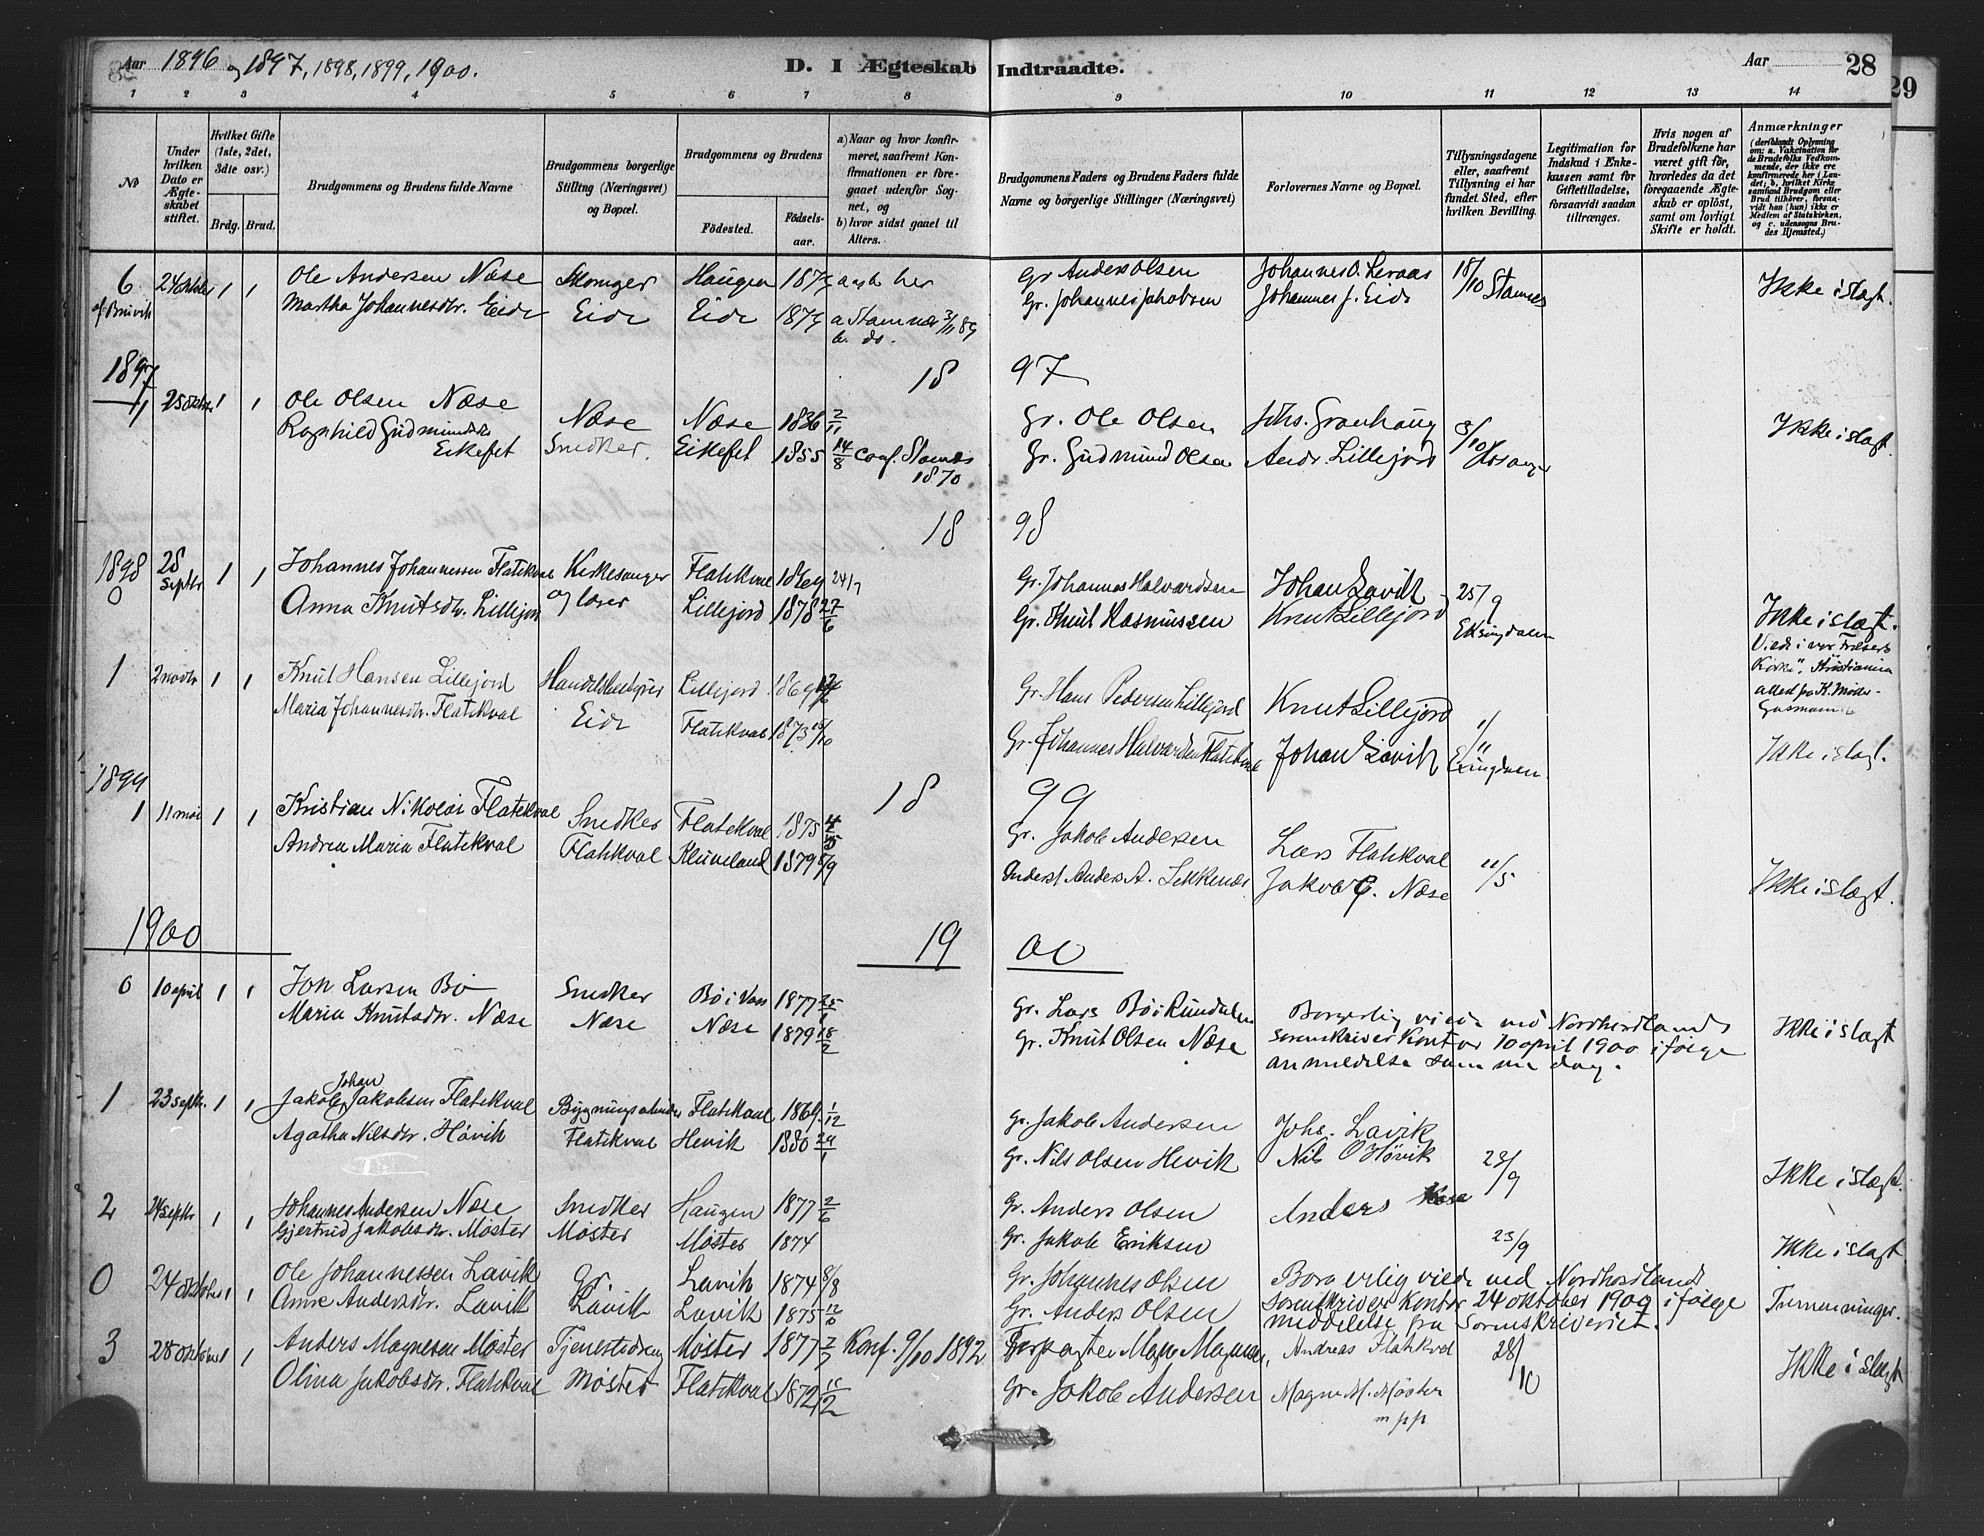 Aar 1896 og 1897, 1898, 1899, 1900.
D. I Ægteskab Indtraadte.
Aar 28
29
1 2 3 4 5 6 7 8 9 10 11 12 13 14
No
Under hvilken Dato er Ægteskabet stiftet.
Hvilket Gifte (1ste, 2det, 3die osv.)
Brdg. Brud.
Brudgommens og Brudens fulde Navne
Brudgommens borgerlige Stilling (Næringsvei) og Bopæl.
Brudgommens og Brudens
Fødested. Fødselsaar.
a) Naar og hvor konfirmeret, saafremt Konfirmationen er foregaaet udenfor Sognet, og
b) hvor sidst gaaet til Alters.
Brudgommens Faders og Brudens Faders fulde Navne og borgerlige Stillinger (Næringsvei)
Forlovernes Navne og Bopæl.
Tillysningsdagene eller, saafremt Tillysning ei har fundet Sted, efter hvilken Bevilling.
Legitimation for Indskud i Enkekassen samt for Giftetilladelse, forsaavidt saadan tiltrænges.
Hvis nogen af Brudefolkene har været gift før, hvorledes da det foregaaende Ægteskab er opløst, samt om lovligt Skifte er holdt.
Anmærkninger
6 24 Oktober 1 1 Ole Andersen Næse Haugen 187 her Gr Anders Olsen Johannes O. Leraas 18/10 Stamnes Ikke i slægt.
af Bruvik Martha Johannesdtr. Eide Eide Eide 187 a Stamnæs 3/11 89 Gr. Johannes Jakobsen Johannes J. Eide
b. do.
1897 18 97
1 25 oktober 1 1 Ole Olsen Næse Næse Næse 1836 2/11 Gr. Ole Olsen Johs. Granhaug 3/10 Ikke i slægt.
Ragnhild Gudmundsdtr. Eikefet Snedker. Eikefet 1855 14/8 conf. Stamnes 1870 Gr. Gudmund Olsen Andr. Lillejord
18 98
1898 28 septbr 1 1 Johannes Johannessen Flatekval Kirkesanger Flatekval 1869 24/7 Gr. Johannes Halvardsen Johan Lavik 25/9
0 Anna Knutsdtr. Lillejord og lærer Lillejord 1878 27/6 Gr. Knut Rasmussen Knut Lillejord Eksingdalen Ikke i slægt.
1 2 novbr 1 1 Knut Hansen Lillejord Handelsbestyrer Lillejord 1869 Gr. Hans Pedersen Lillejord Knut Lillejord Viede i vor Frelsers Kirke", Kristiania
Maria Johannesdtr. Flatekval Eide Flatekval 1873 15/10 Gr. Johannes Halvardsen Flatekval Johan Lavik Ikke i slægt.
1899 18 99
1 11 mai 1 1 Kristian Nikolai Flatekval Snedker Flatekval 1875 Gr. Jakob Andersen Lars Flatekval 11/5
Andrea Maria Flatekval Flatekval 1879 5/9 Anders A. Lekkenæs Jakob Næse Ikke i slægt.
1900 19 00
0 10 april 1 1 Jon Larsen Bø Snedker Bø i Voss 1877 25/1 Gr. Lars Bø i Rundalen Borgerlig viede ved Nordhordlands
Maria Knutsdtr. Næse Næse Næse 1879 18/2 Gr. Knut Olsen Næse sorenskriver Kontor 10 april 1900 ifølge Ikke i slægt
anmeldelse samme dag.
1 23 septr. 1 1 Jakob Johan Jakobsen Flatekval Bygningsarbeider Flatekval 1869 1/12 Gr. Jakob Andersen Johs. Lavik
Agatha Nilsdtr. Høvik Flatekval Hevik 1880 29/1 Gr. Nils Olsen Hevik Nils O Høvik 23/9 Ikke i slægt.
2 24 septbr 1 1 Johannes Andersen Næse Snedker Haugen 1877 2/6 Gr. Anders Olsen Anders Næse
Gjertrud Jakobsdtr. Møster Møster Møster 1874 Gr. Jakob Eriksen 23/9 Ikke i slægt
0 24 oktober 1 1 Ole Johannessen Lavik Gr. Lavik 1874 8/8 Gr. Johannes Olsen Borgerlig viede ved Nordhordlands
Anne Andersdtr. Lavik Lavik Lavik 1875 12/10 Gr. Anders Olsen sorenskriver Kontor 24 oktober 1900 ifølge Tremenninger.
meddelelse fra Sorenskriveriet.
3 28 oktober 1 1 Anders Magnesen Møster Tjenestedreng Møster 1877 7/7 Konf. 9/10 1892 Forpagter Magne Magnesen, Andreas Flatekval 28/10 Ikke i slægt
Olina Jakobsdtr. Flatekval Møster Flatekval 1872 15/2 Gr. Jakob Andersen Magne M. Møster
m pp